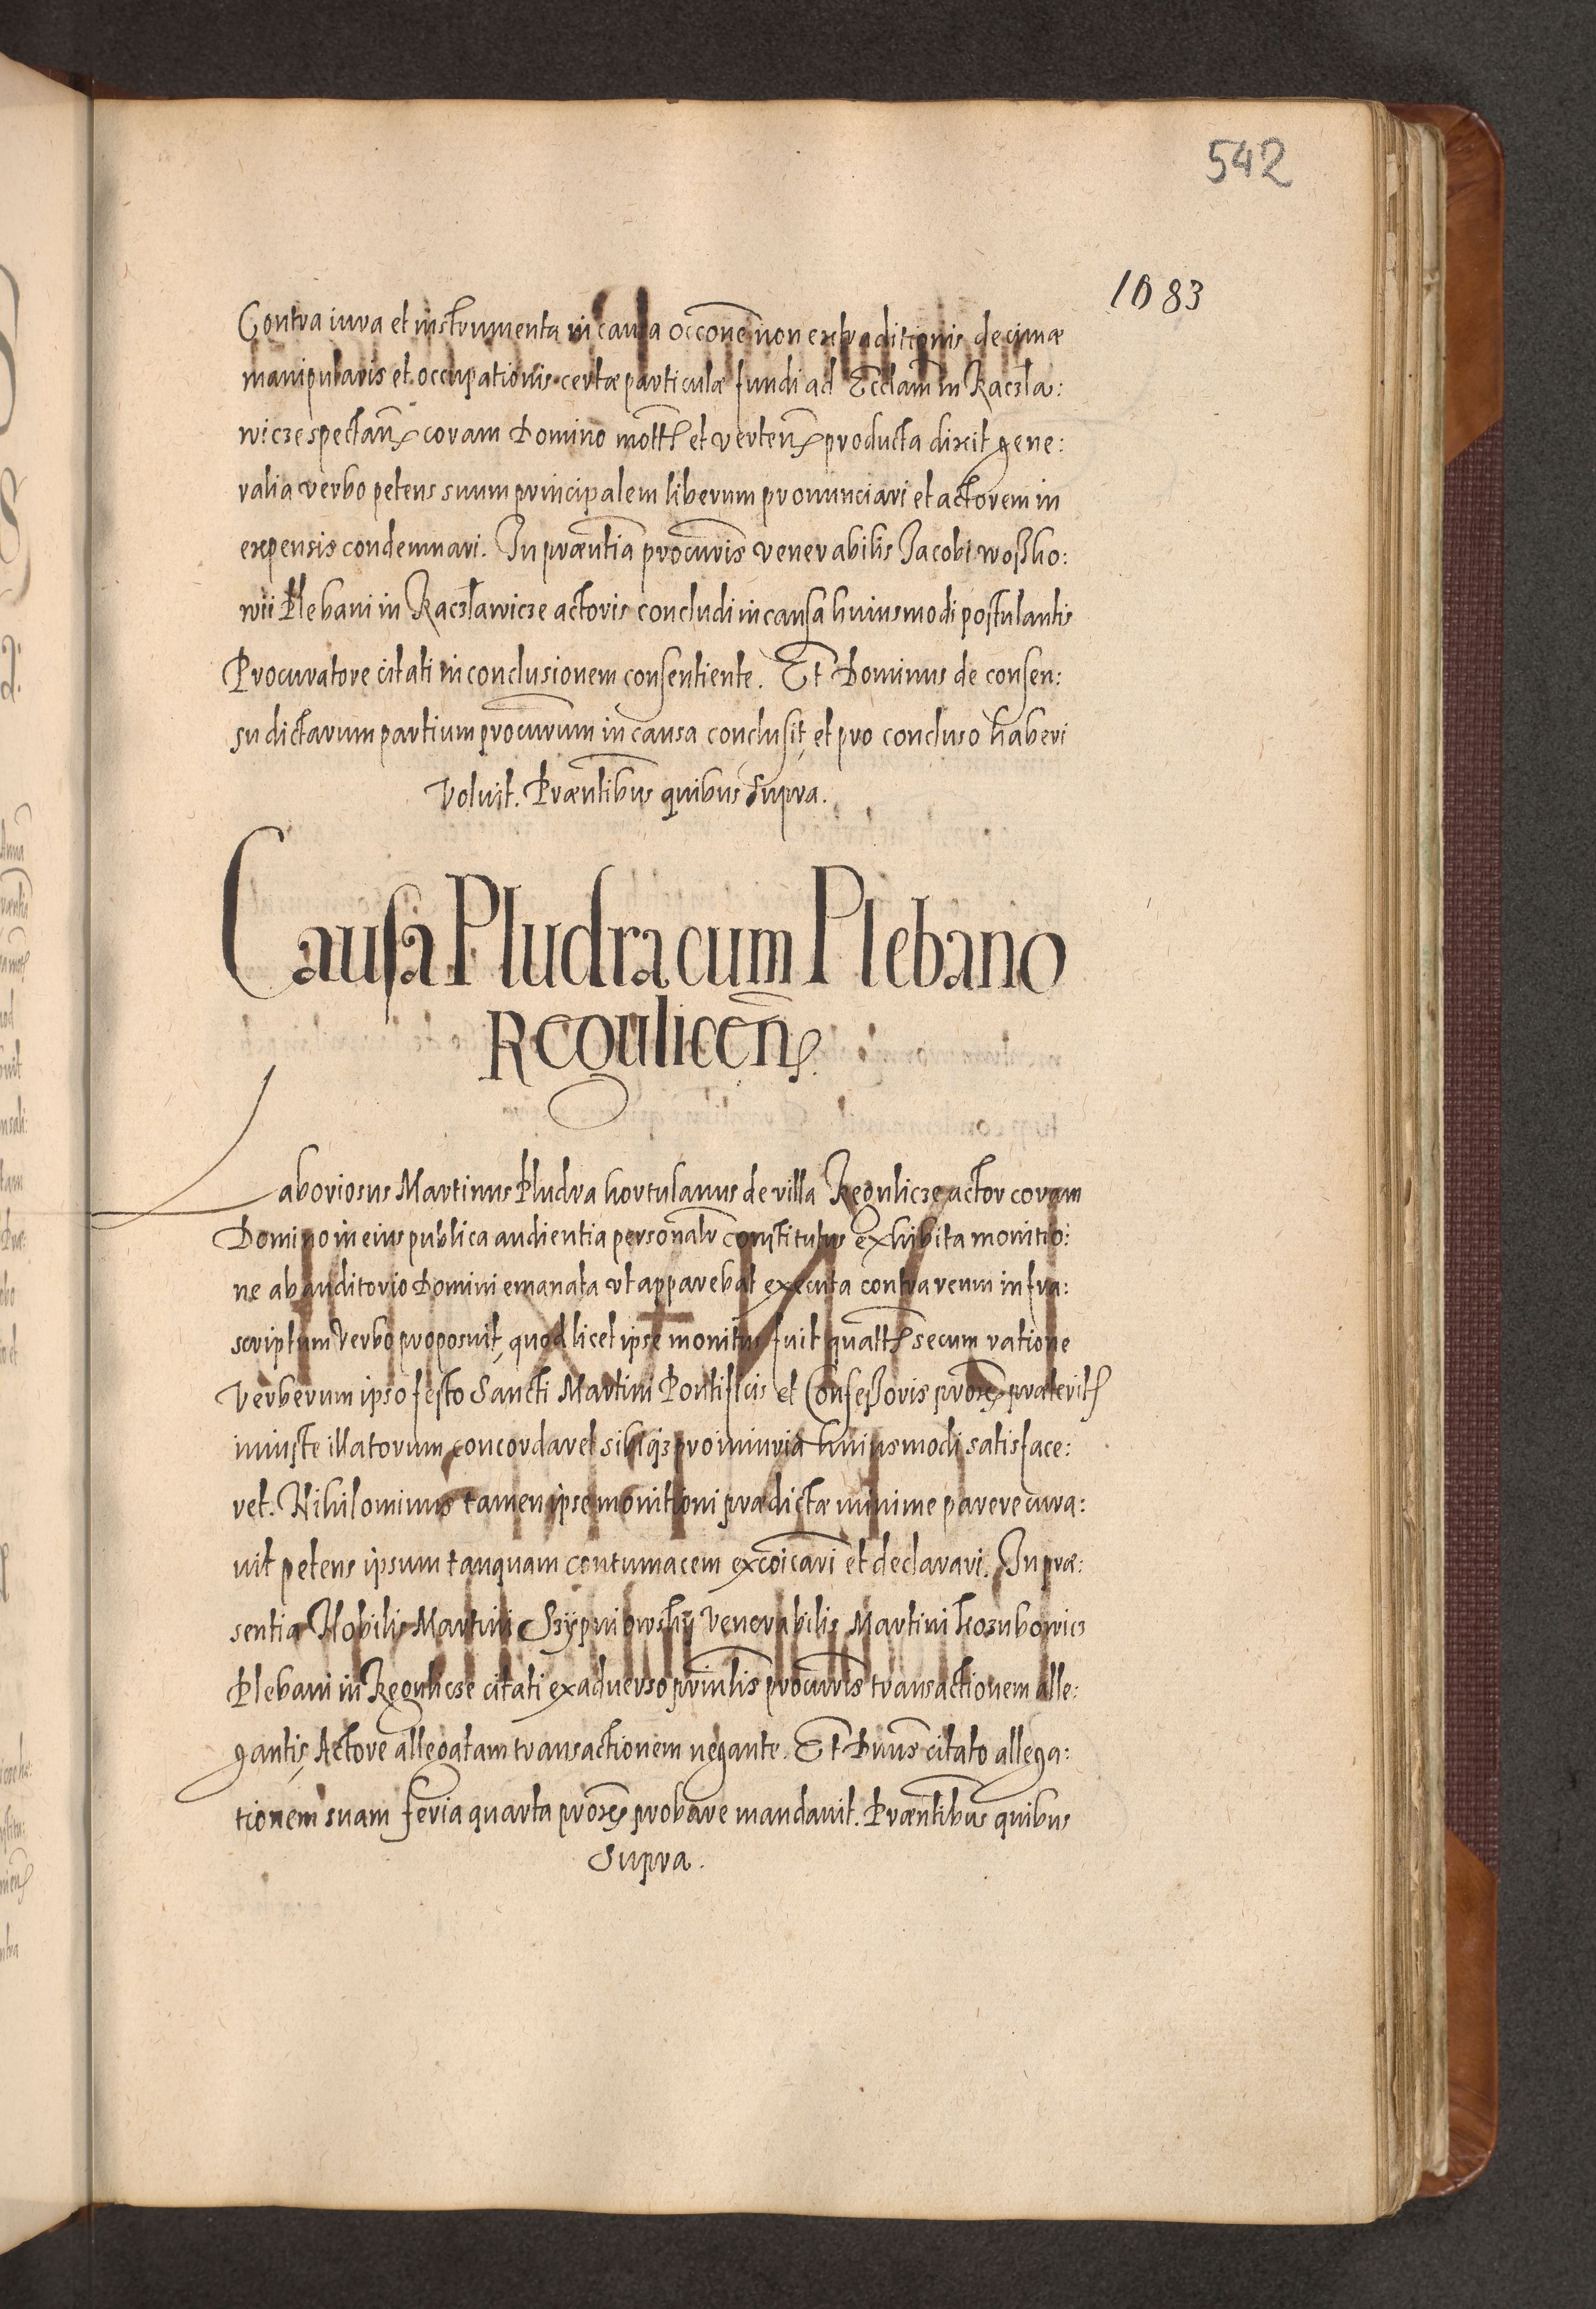 542
1083
Contra iura et instrumenta in causa occōne non extraditionis decimæ
manipularis et occupationis certæ particulæ fundi ad Ecclām in Raczla:
wicze spectañ coram Domino mottħ et verteñ producta dixit gene:
ralia verbo petens suum principalem liberum pronunciari et actorem in
expensis condemnari. In præntia procuris venerabilis Jacobi woßko:
wii Plebani in Raczlawicze actoris concludi in causa huiusmodi postulantis
Procuratore citati in conclusionem consentiente. Et Dominus de consen:
su dictarum partium procurum in causa conclusit, et pro concluso haberi
Voluit. Præntibus quibus supra.
Causa Pludra cum Plebano
Regulicen̄.
Laboriosus Martinus Pludra hortulanus de villa Regulicze actor coram
Domino in eius publica audientia personalr constitutus Exhibita monitio:
ne ab auditorio Domini emanata ut apparebat executa contra reum infra:
scriptum verbo proposuit, quod licet ipse monitus fuit quattħ secum ratione
Verberum ipso festo Sancti Martini Pontificis et Confeßoris prox præterit
iniuste illatorum concordaret sibiqз pro iniuria huiusmodi satisface:
ret. Nihilominus tamen ipse monitioni prædictæ minime parere cura:
uit petens ipsum tanquam contumacem excōicari et declarari. In præ:
sentia Nobilis Martini Szÿpniowskÿ Venerabilis Martini Kozubowicz
Plebani in Regulicze citati ex aduerso prinlis procuris transactionem alle:
gantis, Actore allegatam transactionem negante. Et Dnus citato allega:
tionem suam feria quarta prox probare mandauit. Præntibus quibus
Supra.